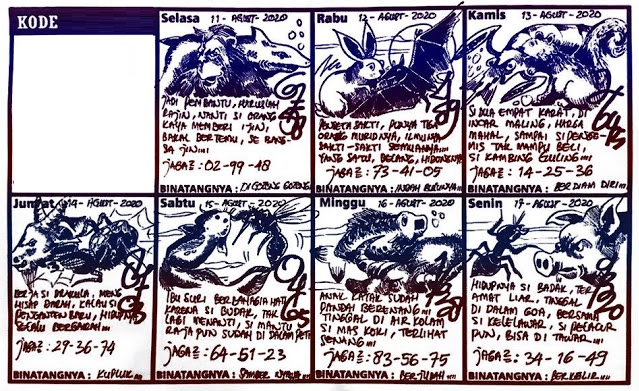 KODE
Selasa 11-AGUST-2020
JADI PEMBANTU, HARUSLAH
RAJIN, NANTI SI ORANG
KAYA MEMBERI IJIN,
BAKAL BERTEMU, SE BANG-
SA JIN!!!
JAGA²: 02-99-48
BINATANGNYA: DI GOTONG GOTONG
Rabu 12-AGUST-2020
PENDETA SAKTI, PUNYA TIGA
ORANG MURIDNYA, ILMUNYA
SAKTI-SAKTI SEMUANYA!!!
YANG SATU, BELANG, HIDUNGNYA
JAGA²: 73-41-05
BINATANGNYA: INDAH BULUNYA!!!
Kamis 13-AGUST-2020
SI DUA EMPAT KARAT, DI
INCAR MALING, HARGA
MAHAL, SAMPAI SI PENGE-
MIS TAK MAMPU BELI,
SI KAMBING GULING!!!
JAGA²: 14-25-36
BINATANGNYA: BERDIAM DIRI!!!
Jumat 14-AGUST-2020
KERJA SI DRAKULA, MENG
HISAP DARAH, KALAU SI
PENGANTEN BARU, HIDUPNYA
SELALU BERGAIRAH!!!
JAGA²: 29-36-74
BINATANGNYA: KUPLUK!!!
Sabtu 15-AGUST-2020
IBU SURI BERBAHAGIA HATI
KARENA SI BUDAK, TAK
LAGI MENANTI, SI MANTU
RAJA PUN SUDAH DI DALAM PETI
JAGA²: 64-51-23
BINATANGNYA: SAMBER NYAWA!!!
Minggu 16-AGUST-2020
ANAK KATAK SUDAH
PANDAI BERENANG!!!
TINGGAL DI AIR KOLAM
SI MAS KOKI, TERLIHAT
SENANG!!!
JAGA²: 83-56-75
BINATANGNYA: BERJUDAH!!!
Senin 17-AGUST-2020
HIDUPNYA SI BADAK, TER
AMAT LIAR, TINGGAL
DI DALAM GOA, BERSAMA
SI KELELAWAR, SI PELACUR
PUN, BISA DI TAWAR!!!
JAGA²: 34-16-49
BINATANGNYA: BERKELIR!!!